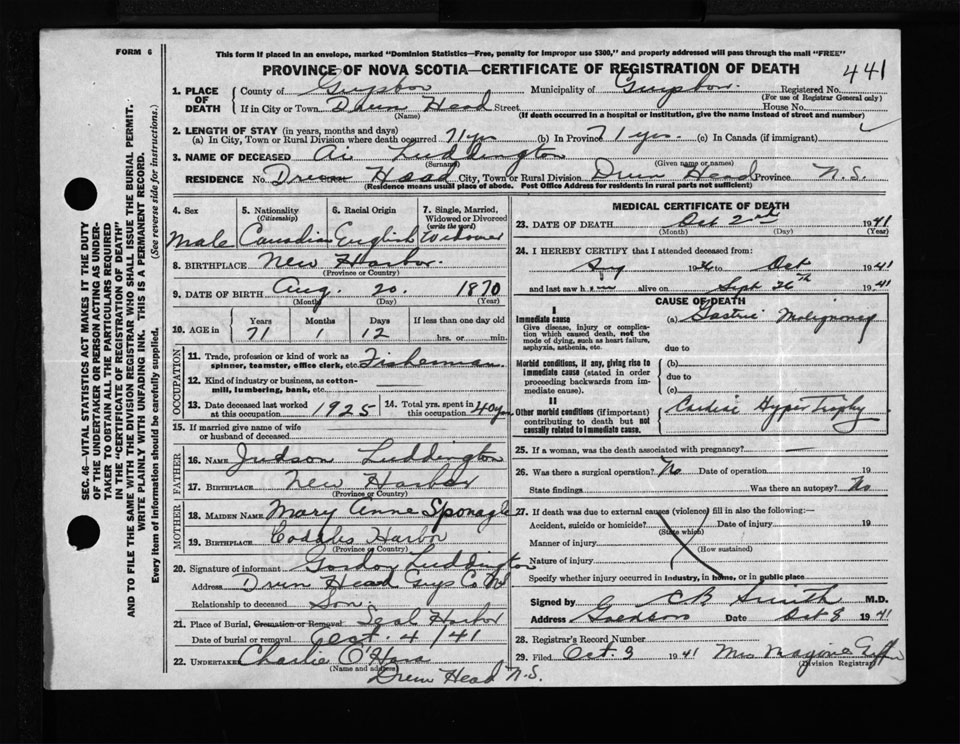 FORM 6
This form if placed in an envelope, marked "Dominion Statistics—Free, penalty for improper use $300," and properly addressed will pass through the mail "FREE"
PROVINCE OF NOVA SCOTIA—CERTIFICATE OF REGISTRATION OF DEATH
441
1. PLACE OF DEATH
County of Guysboro Municipality of Guysboro Registered No.
(For use of Registrar General only)
If in City or Town Drum Head Street House No.
(Name) (If death occurred in a hospital or institution, give the name instead of street and number)
2. LENGTH OF STAY (in years, months and days)
(a) In City, Town or Rural Division where death occurred 71 yrs (b) In Province 71 yrs. (c) In Canada (if immigrant)
3. NAME OF DECEASED Luddington
(Surname) (Given name or names)
RESIDENCE No. Drum Head City, Town or Rural Division Drum Head Province N.S.
(Residence means usual place of abode. Post Office Address for residents in rural parts not sufficient)
4. Sex Male
5. Nationality (Citizenship) Canadian
6. Racial Origin English
7. Single, Married, Widowed or Divorced (write the word) Widower
8. BIRTHPLACE New Harbor.
(Province or Country)
9. DATE OF BIRTH Aug. 20. 1870
(Month) (Day) (Year)
10. AGE in Years 71 Months 1 Days 12 If less than one day old
hrs. or min.
OCCUPATION
11. Trade, profession or kind of work as spinner, teamster, office clerk, etc. Fisherman
12. Kind of industry or business, as cotton-mill, lumbering, bank, etc.
13. Date deceased last worked at this occupation 1925
14. Total yrs. spent in this occupation 40 yrs
15. If married give name of wife or husband of deceased
FATHER
16. NAME Judson Luddington
17. BIRTHPLACE New Harbor
(Province or Country)
MOTHER
18. MAIDEN NAME Mary Anne Sponagle
19. BIRTHPLACE Coddles Harbor
(Province or Country)
20. Signature of informant Gordon Luddington
Address Drum Head Guys Co NS
Relationship to deceased Son.
21. Place of Burial, Cremation or Removal Seal Harbor
Date of burial or removal Oct. 4/41
22. UNDERTAKER Charlie O'Hara
(Name and address)
Drum Head N.S.
MEDICAL CERTIFICATE OF DEATH
23. DATE OF DEATH Oct 2nd 1941
(Month) (Day) (Year)
24. I HEREBY CERTIFY that I attended deceased from:
19 to Oct 1941
and last saw him alive on Sept 26th 1941
CAUSE OF DEATH
I
Immediate cause
Give disease, injury or complication which caused death, not the mode of dying, such as heart failure, asphyxia, asthenia, etc.
(a) Gastric Malignancy
due to
Morbid conditions, if any, giving rise to immediate cause (stated in order proceeding backwards from immediate cause).
(b)
due to
(c)
II
Other morbid conditions (if important) contributing to death but not causally related to immediate cause.
Cardiac Hypertrophy
25. If a woman, was the death associated with pregnancy? —
26. Was there a surgical operation? No Date of operation 19
State findings Was there an autopsy? No
27. If death was due to external causes (violence) fill in also the following:—
Accident, suicide or homicide? Date of injury 19
(State which)
Manner of injury
(How sustained)
Nature of injury
Specify whether injury occurred in industry, in home, or in public place
Signed by CB Smith M.D.
Address Goldboro Date Oct 3 1941
28. Registrar's Record Number
29. Filed Oct. 3 1941 Mrs
(Division Registrar)
SEC. 46—VITAL STATISTICS ACT MAKES IT THE DUTY
OF THE UNDERTAKER OR PERSON ACTING AS UNDER-
TAKER TO OBTAIN ALL THE PARTICULARS REQUIRED
IN THE "CERTIFICATE OF REGISTRATION OF DEATH"
AND TO FILE THE SAME WITH THE DIVISION REGISTRAR WHO SHALL ISSUE THE BURIAL PERMIT.
WRITE PLAINLY WITH UNFADING INK. THIS IS A PERMANENT RECORD.
Every item of information should be carefully supplied. (See reverse side for instructions.)